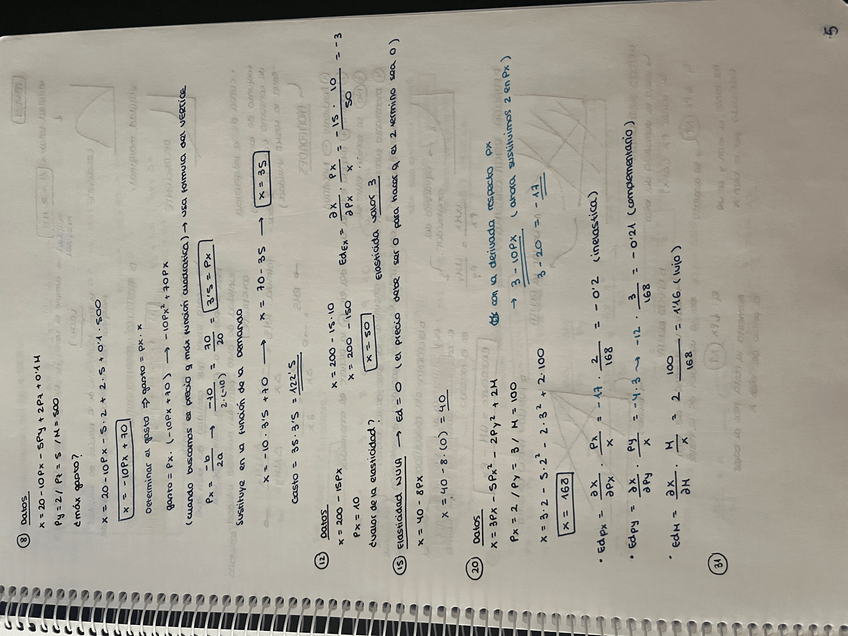 5
⑧ Datos
x = 20 - 10Px - 5Py + 2Pz + 0'1M
Py = 2 / Pz = 5 / M = 500
¿máx gasto?
x = 20 - 10Px - 5·2 + 2·5 + 0'1·500
x = -10Px + 70
Determinar el gasto ⇒ gasto = Px · x
gasto = Px · (-10Px + 70) → -10Px² + 70Px
(cuando buscamos el precio q max función cuadrática) → usa formula del VERTICE
Px = -b / 2a → -70 / 2·(-10) = 70 / 20 = 3'5 = Px
Sustituye en la función de la demanda
x = -10 · 3'5 + 70 → x = 70 - 35 → x = 35
Gasto = 35 · 3'5 = 122'5
⑫ Datos
x = 200 - 15Px
Px = 10
¿valor de la elasticidad?
x = 200 - 15·10
x = 200 - 150
x = 50
EdEx = ∂x / ∂Px · Px / x = -15 · 10 / 50 = -3
Elasticidad valor 3
⑮ Elasticidad NULA → Ed = 0 (el precio debe ser 0 para hacer q el 2 termino sea 0)
x = 40 - 8Px
x = 40 - 8·(0) = 40
⑳ Datos
x = 3Px - 5Px² - 2Py² + 2M
Px = 2 / Py = 3 / M = 100
x = 3·2 - 5·2² - 2·3² + 2·100
x = 168
con la derivada respecto px
→ 3 - 10Px (ahora sustituimos 2 en Px)
3 - 20 = -17
• EdPx = ∂x / ∂Px · Px / x = -17 · 2 / 168 = -0'2 (inelastica)
• EdPy = ∂x / ∂Py · Py / x = -4·3 → -12 · 3 / 168 = -0'21 (complementario)
• EdM = ∂x / ∂M · M / x = 2 · 100 / 168 = 1'16 (lujo)
㉛